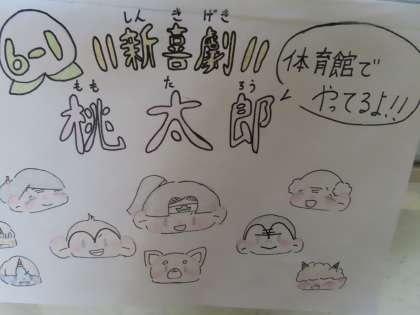 しんきげき
6-1 〃新喜劇〃
ももたろう
桃太郎
体育館で
やってるよ!!